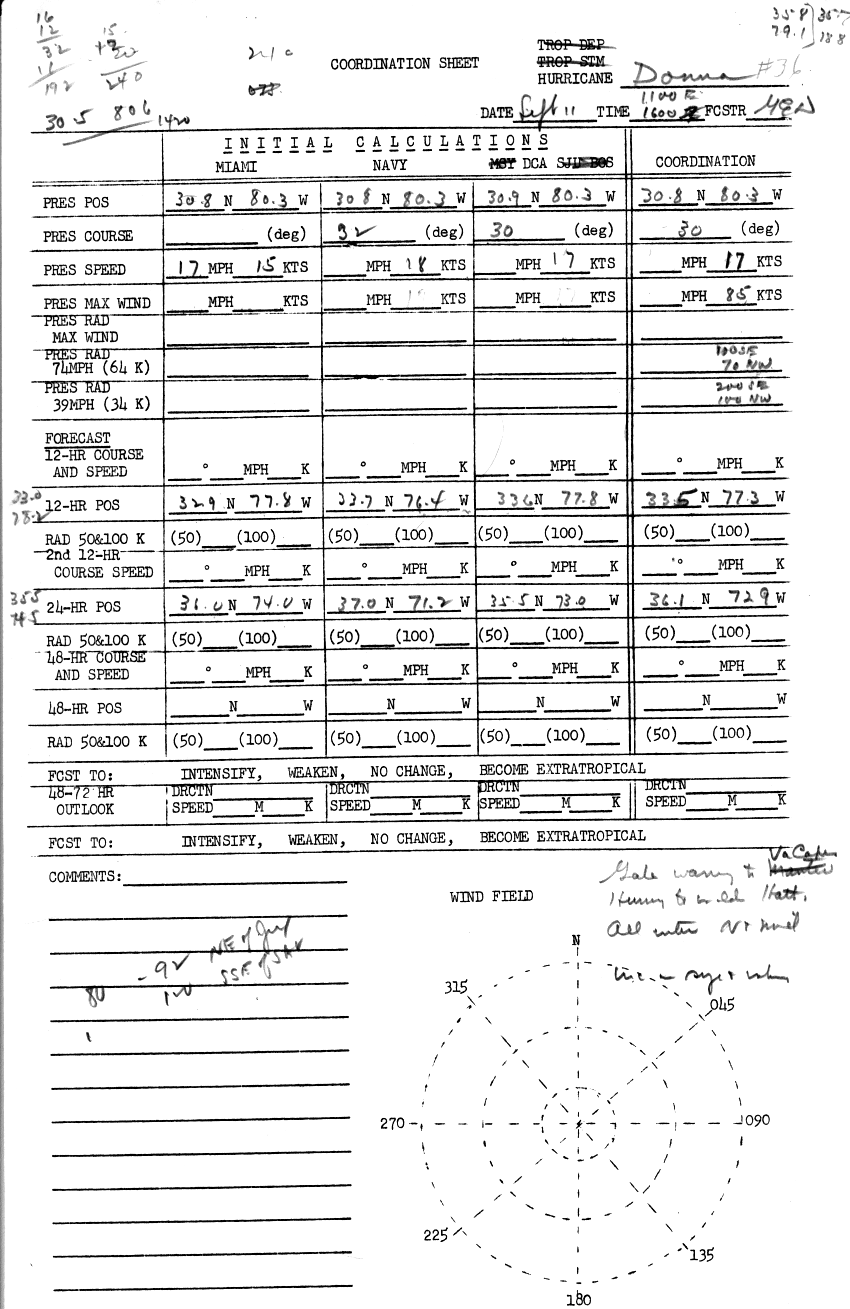 16
12
32
11
192
15
240
35.8 35.7
79.1 78.8
COORDINATION SHEET
TROP DEP
TROP STM
HURRICANE Donna #36
30.5 80.6 1420
DATE Sept 11 TIME 1100 E 1600 Z FCSTR
INITIAL CALCULATIONS
MIAMI NAVY MSY DCA SJU BOS COORDINATION
PRES POS 30.8 N 80.3 W 30.8 N 80.3 W 30.9 N 80.3 W 30.8 N 80.3 W
PRES COURSE (deg) 32 (deg) 30 (deg) 30 (deg)
PRES SPEED 17 MPH 15 KTS MPH 18 KTS MPH 17 KTS MPH 17 KTS
PRES MAX WIND MPH KTS MPH KTS MPH KTS MPH 85 KTS
PRES RAD
MAX WIND
PRES RAD 100 SE
74MPH (64 K) 70 NW
PRES RAD 200 SE
39MPH (34 K) 100 NW
FORECAST
12-HR COURSE
AND SPEED ° MPH K ° MPH K ° MPH K ° MPH K
33.0
78.2
12-HR POS 32.9 N 77.8 W 33.7 N 76.4 W 33.6 N 77.8 W 33.5 N 77.3 W
RAD 50&100 K (50) (100) (50) (100) (50) (100) (50) (100)
2nd 12-HR
COURSE SPEED ° MPH K ° MPH K ° MPH K ° MPH K
35.5
74.5
24-HR POS 36.0 N 74.0 W 37.0 N 71.2 W 35.5 N 73.0 W 36.1 N 72.9 W
RAD 50&100 K (50) (100) (50) (100) (50) (100) (50) (100)
48-HR COURSE
AND SPEED ° MPH K ° MPH K ° MPH K ° MPH K
48-HR POS N W N W N W N W
RAD 50&100 K (50) (100) (50) (100) (50) (100) (50) (100)
FCST TO: INTENSIFY, WEAKEN, NO CHANGE, BECOME EXTRATROPICAL
48-72 HR DRCTN DRCTN DRCTN DRCTN
OUTLOOK SPEED M K SPEED M K SPEED M K SPEED M K
FCST TO: INTENSIFY, WEAKEN, NO CHANGE, BECOME EXTRATROPICAL
COMMENTS:
WIND FIELD
Va Capes
Gale warng to
Hatt.
All inter
NE of
92 SSE of SAV
80 100
N
315
045
270
090
225
135
180